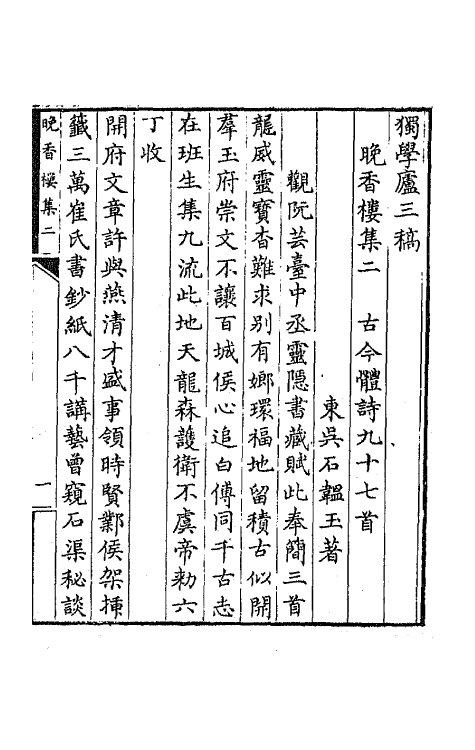 獨學廬三稿
晚香樓集二 古今體詩九十七首
東吳石韞玉著
觀阮芸臺中丞靈隱書藏賦此奉簡三首
龍威靈寶杳難求别有嫏環福地留積古似開
羣玉府崇文不讓百城侯心追白傅同千古志
在班生集九流此地天龍森護衛不虞帝勅六
丁收
開府文章許與燕清才盛事領時賢鄴侯架揷
籤三萬崔氏書鈔紙八千講藝曾窺石渠秘談
晚香樓集二
一